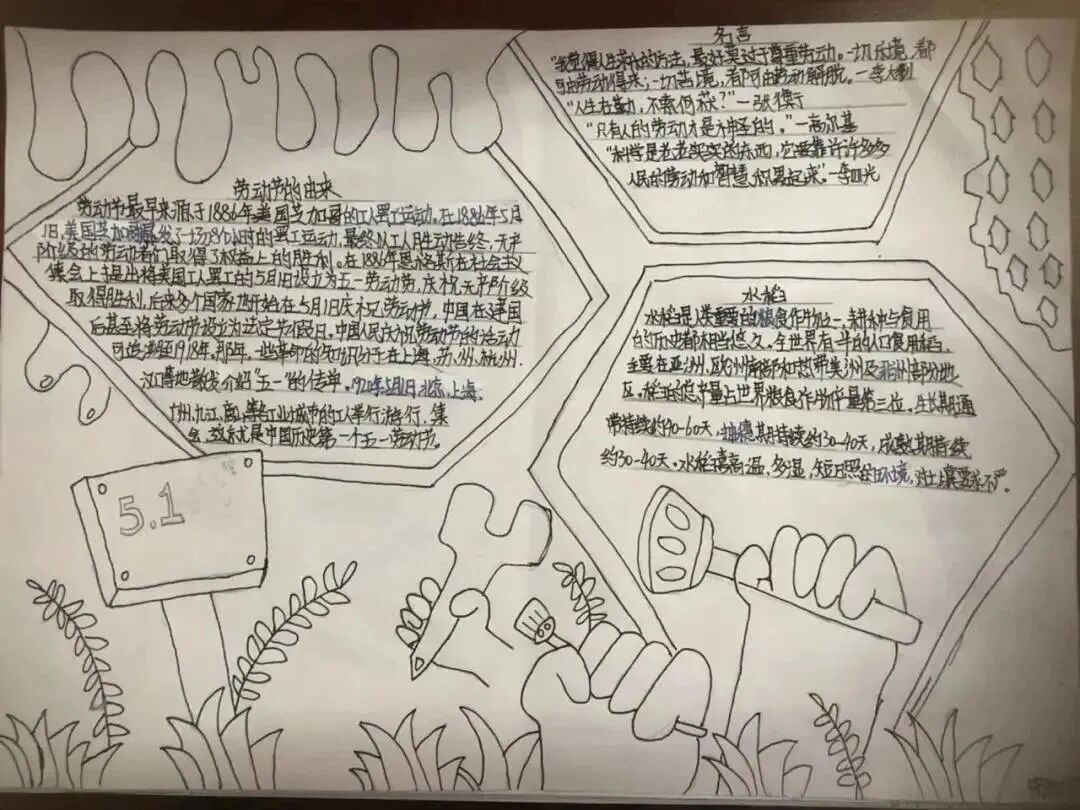 劳动节的由来
劳动节最早来源于1886年美国芝加哥的工人罢工运动。在1886年5月
1日,美国芝加哥爆发了一场8小时的罢工运动,最终以工人胜利告终,无产
阶级的劳动者们取得了权益上的胜利。在1886年恩格斯在社会主义
集会上提出将美国工人罢工的5月1日设立为五一劳动节,庆祝无产阶级
取得胜利,后来多个国家也开始在5月1日庆祝劳动节,中国在建国
后甚至将劳动节设立为法定节假日。中国人民庆祝劳动节的活动
可追溯至1918年。那年,一些革命的知识分子在上海、苏州、杭州、
汉口等地散发介绍"五一"的传单。1920年5月1日,北京、上海、
广州、九江、唐山等各工业城市的工人举行游行、集
会,这就是中国历史第一个五一劳动节。
5.1
名言
"我觉得人生求乐的方法,最好莫过于尊重劳动。一切乐境,都
可由劳动得来,一切苦境,都可由劳动解脱。—李大钊
"人生在勤,不索何获?"—张衡
"只有人的劳动才是神圣的。"—高尔基
"科学是老老实实的东西,它要靠许许多多
人民的劳动和智慧积累起来。"—李四光
水稻
水稻是人类重要的粮食作物之一,耕种与食用
的历史都相当悠久。全世界有一半的人口食用稻,
主要在亚洲、欧洲南部和热带美洲及非洲部分地
区。稻的总产量占世界粮食作物产量第三位。生长期通
常持续约40-60天,抽穗期持续约30-40天,成熟期持续
约30-40天。水稻喜高温、多湿、短日照环境,对土壤要求不严。